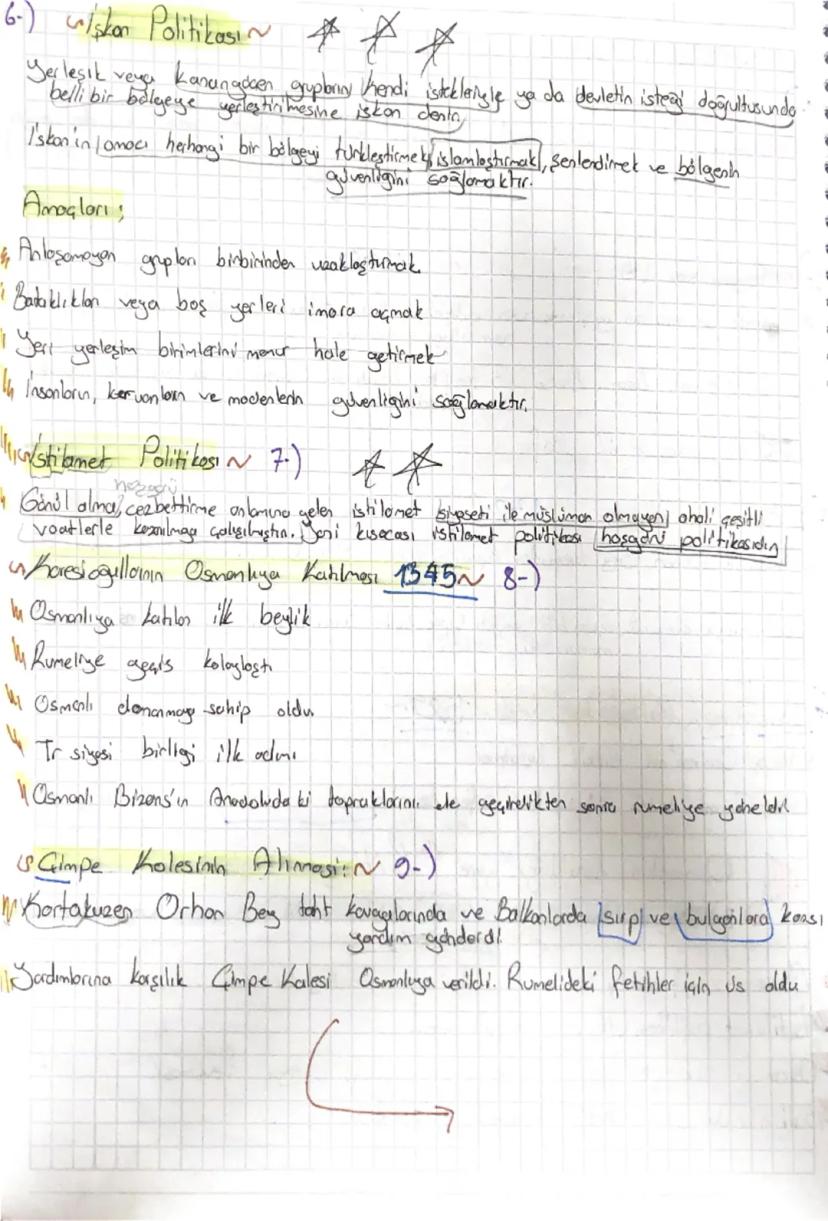 6-) İskan Politikası
Yerleşik veya Konargöçen grupların kendi istekleriyle ya da devletin isteği doğrultusunda
belli bir bölgeye yerleştirilmesine iskan denir.
İskan'ın amacı herhangi bir bölgeyi türkleştirmek, islamlaştırmak, şenlendirmek ve bölgenin
güvenliğini sağlamaktır.
Amaçları;
Anlaşamayan grupları birbirinden uzaklaştırmak
Bataklıkları veya boş yerleri imara açmak
Yeri yerleşim birimlerini hale getirmek
İnsanların, kervanların ve madenlerin güvenliğini sağlamaktır.
İstilamet Politikası 7-)
hoşgörü
Gönül alma, cezbettirme anlamına gelen istilamet siyaseti ile müslüman olmayan ahali çeşitli
vaatlerle kazanılmaya çalışılmıştır. Yani kısacası istilamet politikası hoşgörü politikasıdır
Karesioğullarının Osmanlıya Katılması 1345 8-)
Osmanlıya katılan ilk beylik
Rumeliye geçiş kolaylaştı
Osmanlı donanmaya sahip oldu
Tr siyasi birliği ilk adımı
Osmanlı Bizans'ın Anadoludaki topraklarını ele geçirdikten sonra rumeliye yöneldi
Çimpe Kalesinin Alınması: 9-)
Kantakuzen Orhan Bey taht kavgalarında ve Balkanlarda sırp ve bulgarlara karşı
yardım gönderdi
Yardımlarına karşılık Çimpe Kalesi Osmanlıya verildi. Rumelideki fetihler için üs oldu